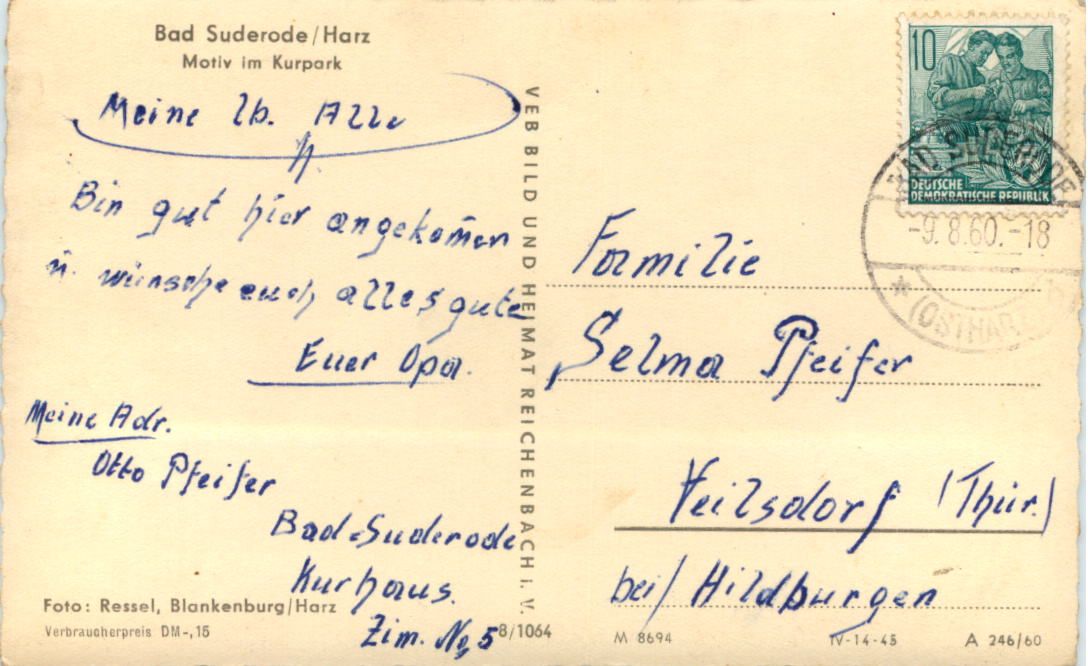 Bad Suderode/Harz
Motiv im Kurpark
Meine lb. Alle
Bin gut hier angekom̄en
u. wünsche euch alles gute
Euer Opa.
Meine Adr.
Otto Pfeifer
Bad-Suderode
Kurhaus.
Zim. No, 5
Foto: Ressel, Blankenburg/Harz
Verbraucherpreis DM -,15
8/1064
VEB BILD UND HEIMAT REICHENBACH i. V.
10
DEUTSCHE
DEMOKRATISCHE REPUBLIK
BAD SUDERODE
-9.8.60.-18
(OSTHARZ)
Familie
Selma Pfeifer
Veilsdorf (Thür.)
bei/ Hildburgen
M 8694
IV-14-45
A 246/60